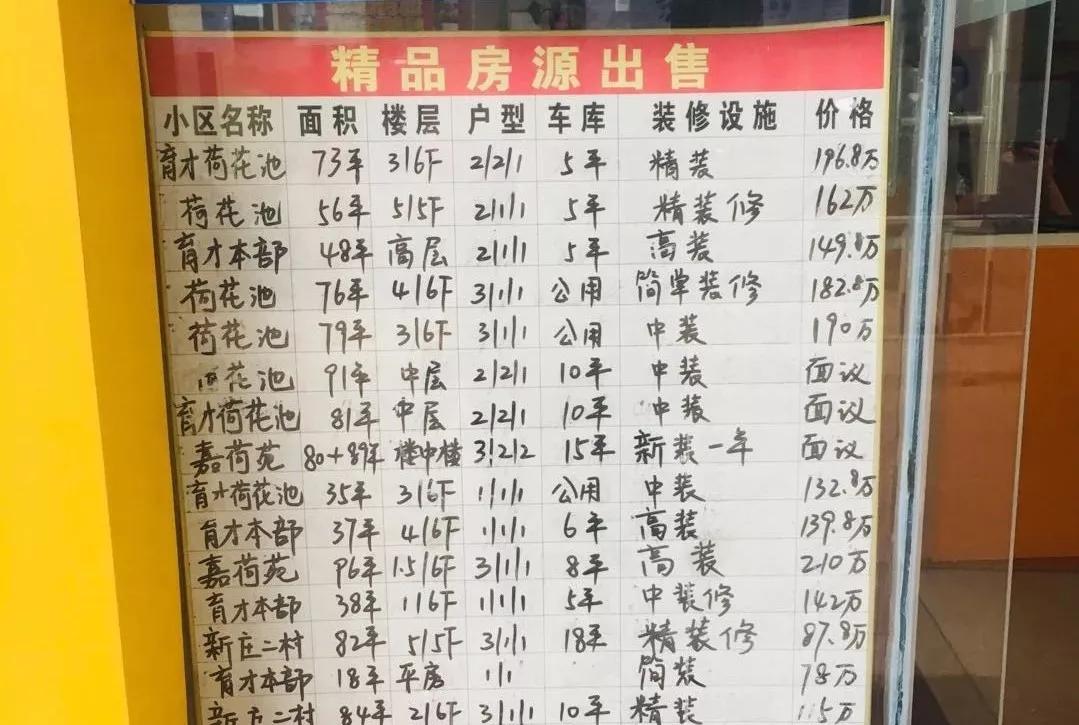 精品房源出售
小区名称 面积 楼层 户型 车库 装修设施 价格
育才荷花池 73平 3/6F 2/2/1 5平 精装 196.8万
荷花池 56平 5/5F 2/1/1 5平 精装修 162万
育才本部 48平 高层 2/1/1 5平 高装 149.8万
荷花池 76平 4/6F 3/1/1 公用 简单装修 182.8万
荷花池 79平 3/6F 3/1/1 公用 中装 190万
花池 91平 中层 2/2/1 10平 中装 面议
育才荷花池 81平 中层 2/2/1 10平 中装 面议
嘉荷苑 80+89平 楼中楼 3/2/2 15平 新装一年 面议
育才荷花池 35平 3/6F 1/1/1 公用 中装 132.8万
育才本部 37平 4/6F 1/1/1 6平 高装 139.8万
嘉荷苑 96平 1.5/6F 3/1/1 8平 高装 210万
育才本部 38平 1/6F 1/1/1 5平 中装修 142万
新庄二村 82平 5/5F 3/1/1 18平 精装修 87.8万
育才本部 18平 平房 1/1 简装 78万
新庄二村 84平 2/6F 3/1/1 10平 精装 115万